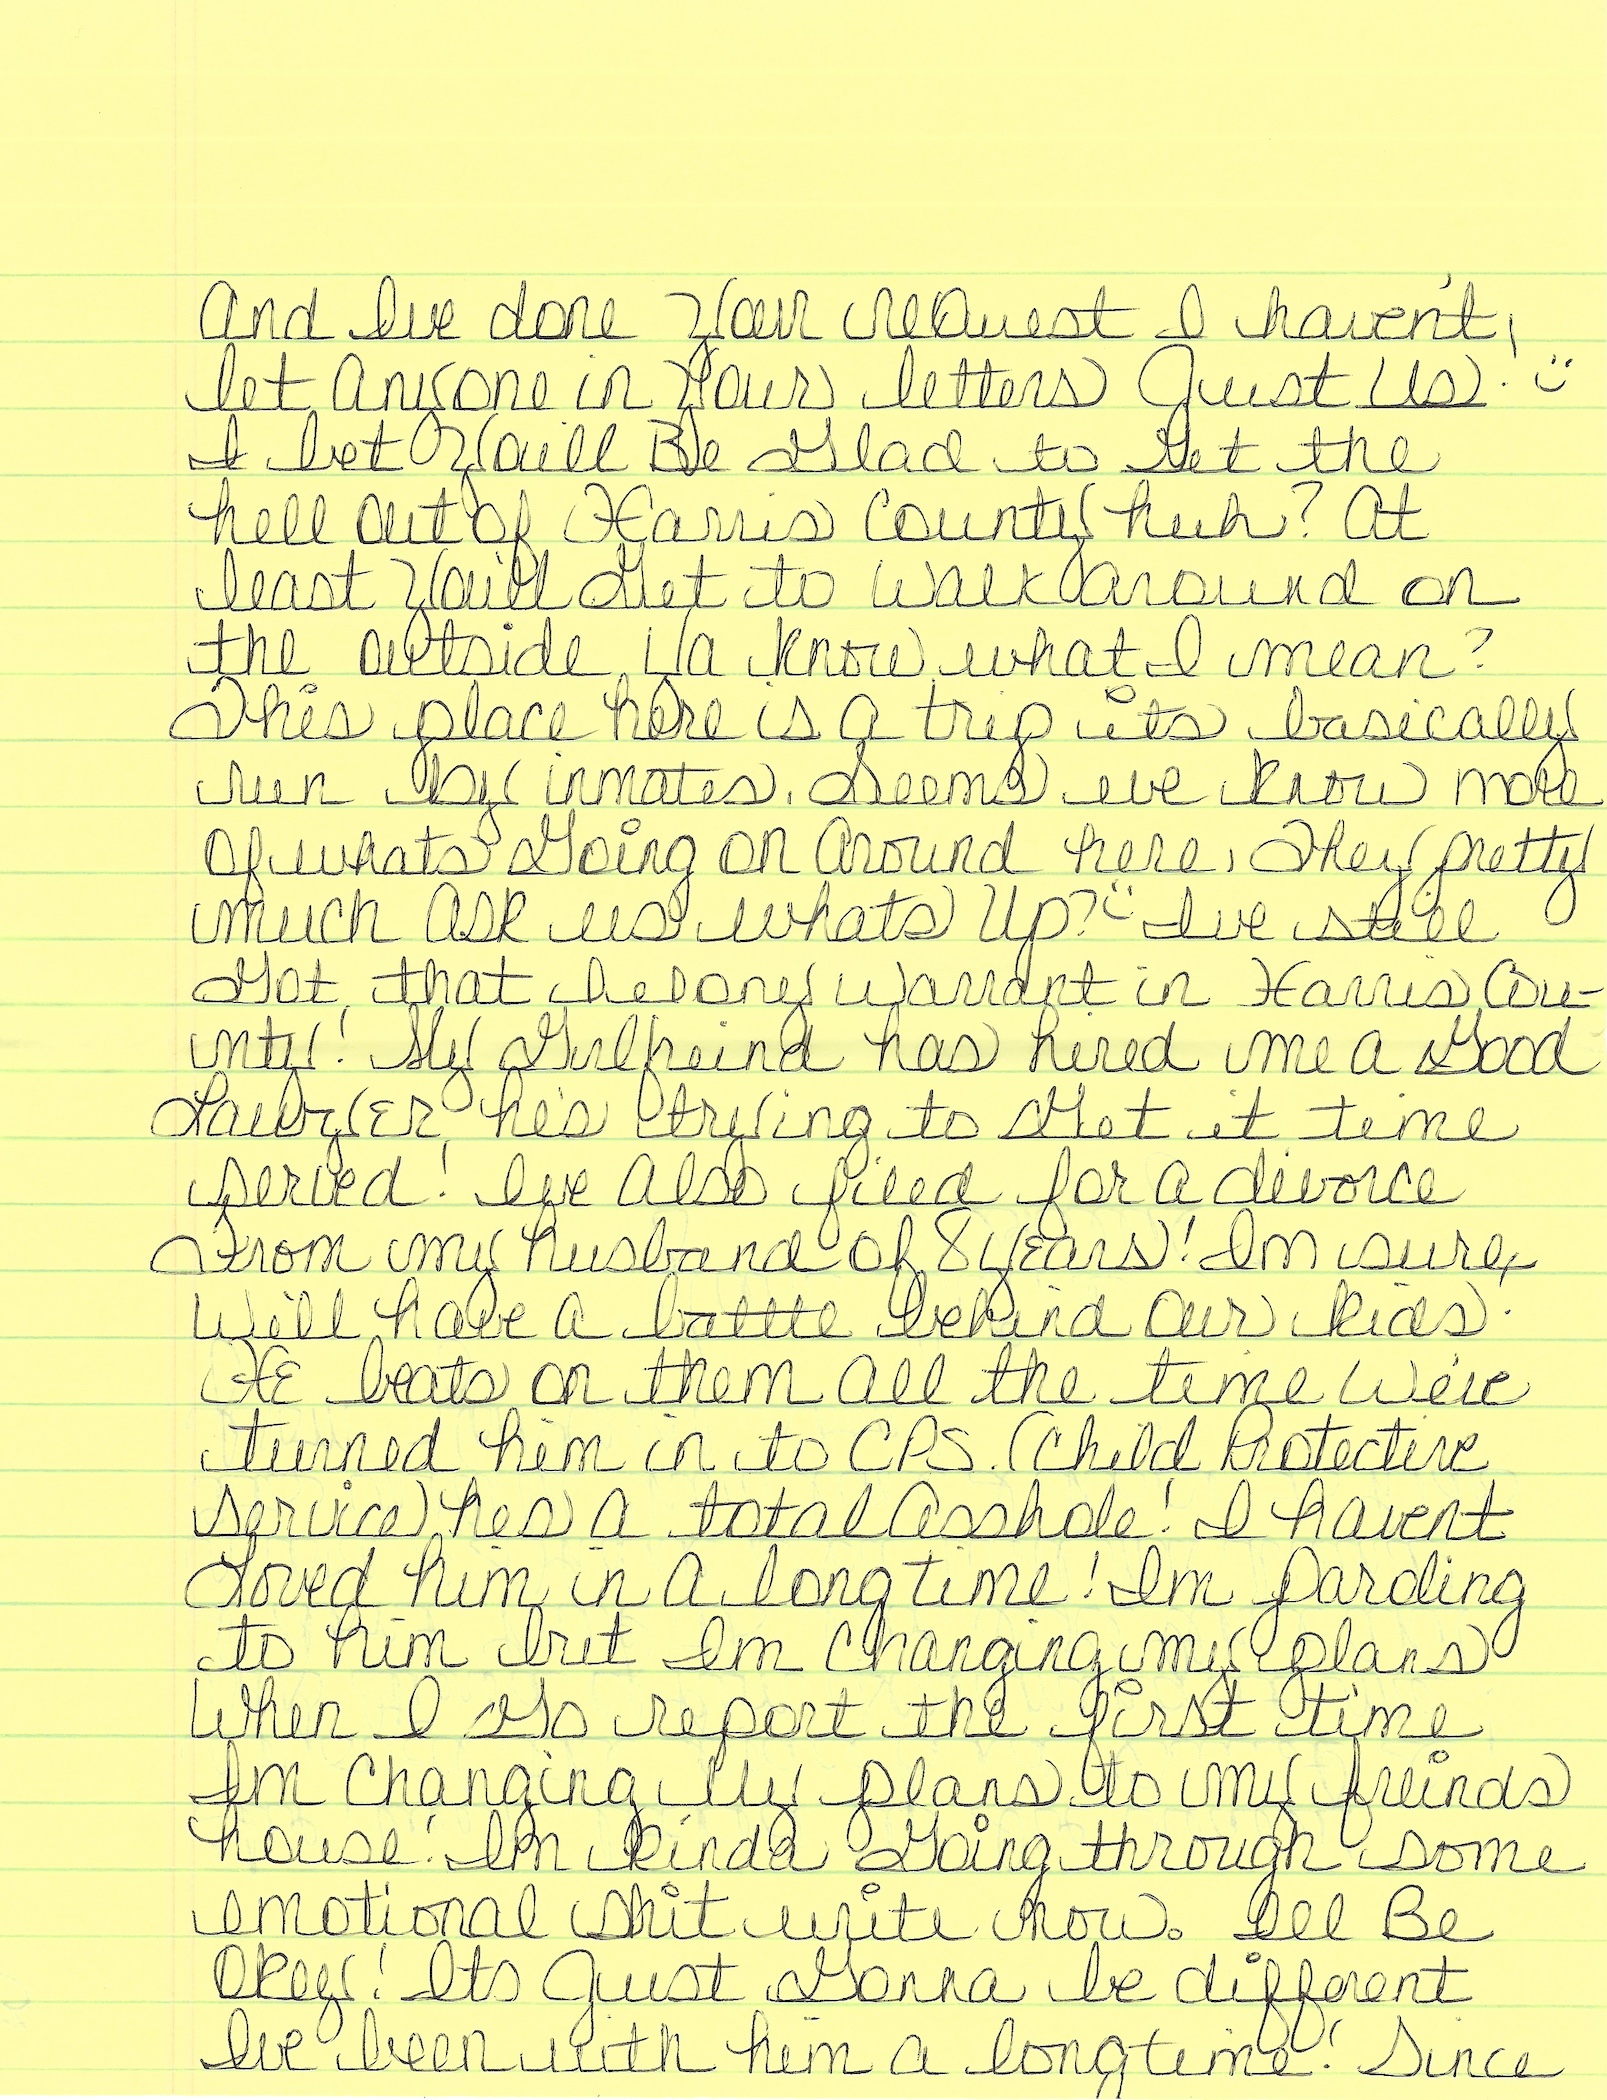 And Ive done Your reQuest I haven't,
let Anyone in Your letters Just Us. :)
I bet You'll Be Glad to Get the
hell Out of Harris County huh? At
least You'll Get to Walk Around on
the outside, Ya know what I mean?
This place here is A trip its basically
run by inmates. Seems we know more
Of whats Going on Around here, They pretty
much Ask us whats Up? :) Ive still
Got that belony warrant in Harris Cou-
nty! My Girlfreind has hired me A Good
LawyEr, he's trying to Get it time
served! Ive Also filed for A divorce
From my husband of 8 yEars! Im sure,
Will have A battle behind Our kids.
HE beats on them All the time We've
turned him in to CPS. (Child Protective
Service) hes A total Asshole! I havent
Loved him in A long time! Im paroling
to him but Im Changing my plans
When I Go report the first time
Im Changing My plans to my freinds
house! Im kinda Going through some
emotional shit write now. Ill Be
Okay! Its Just Gonna be different
Ive been with him A long time! Since